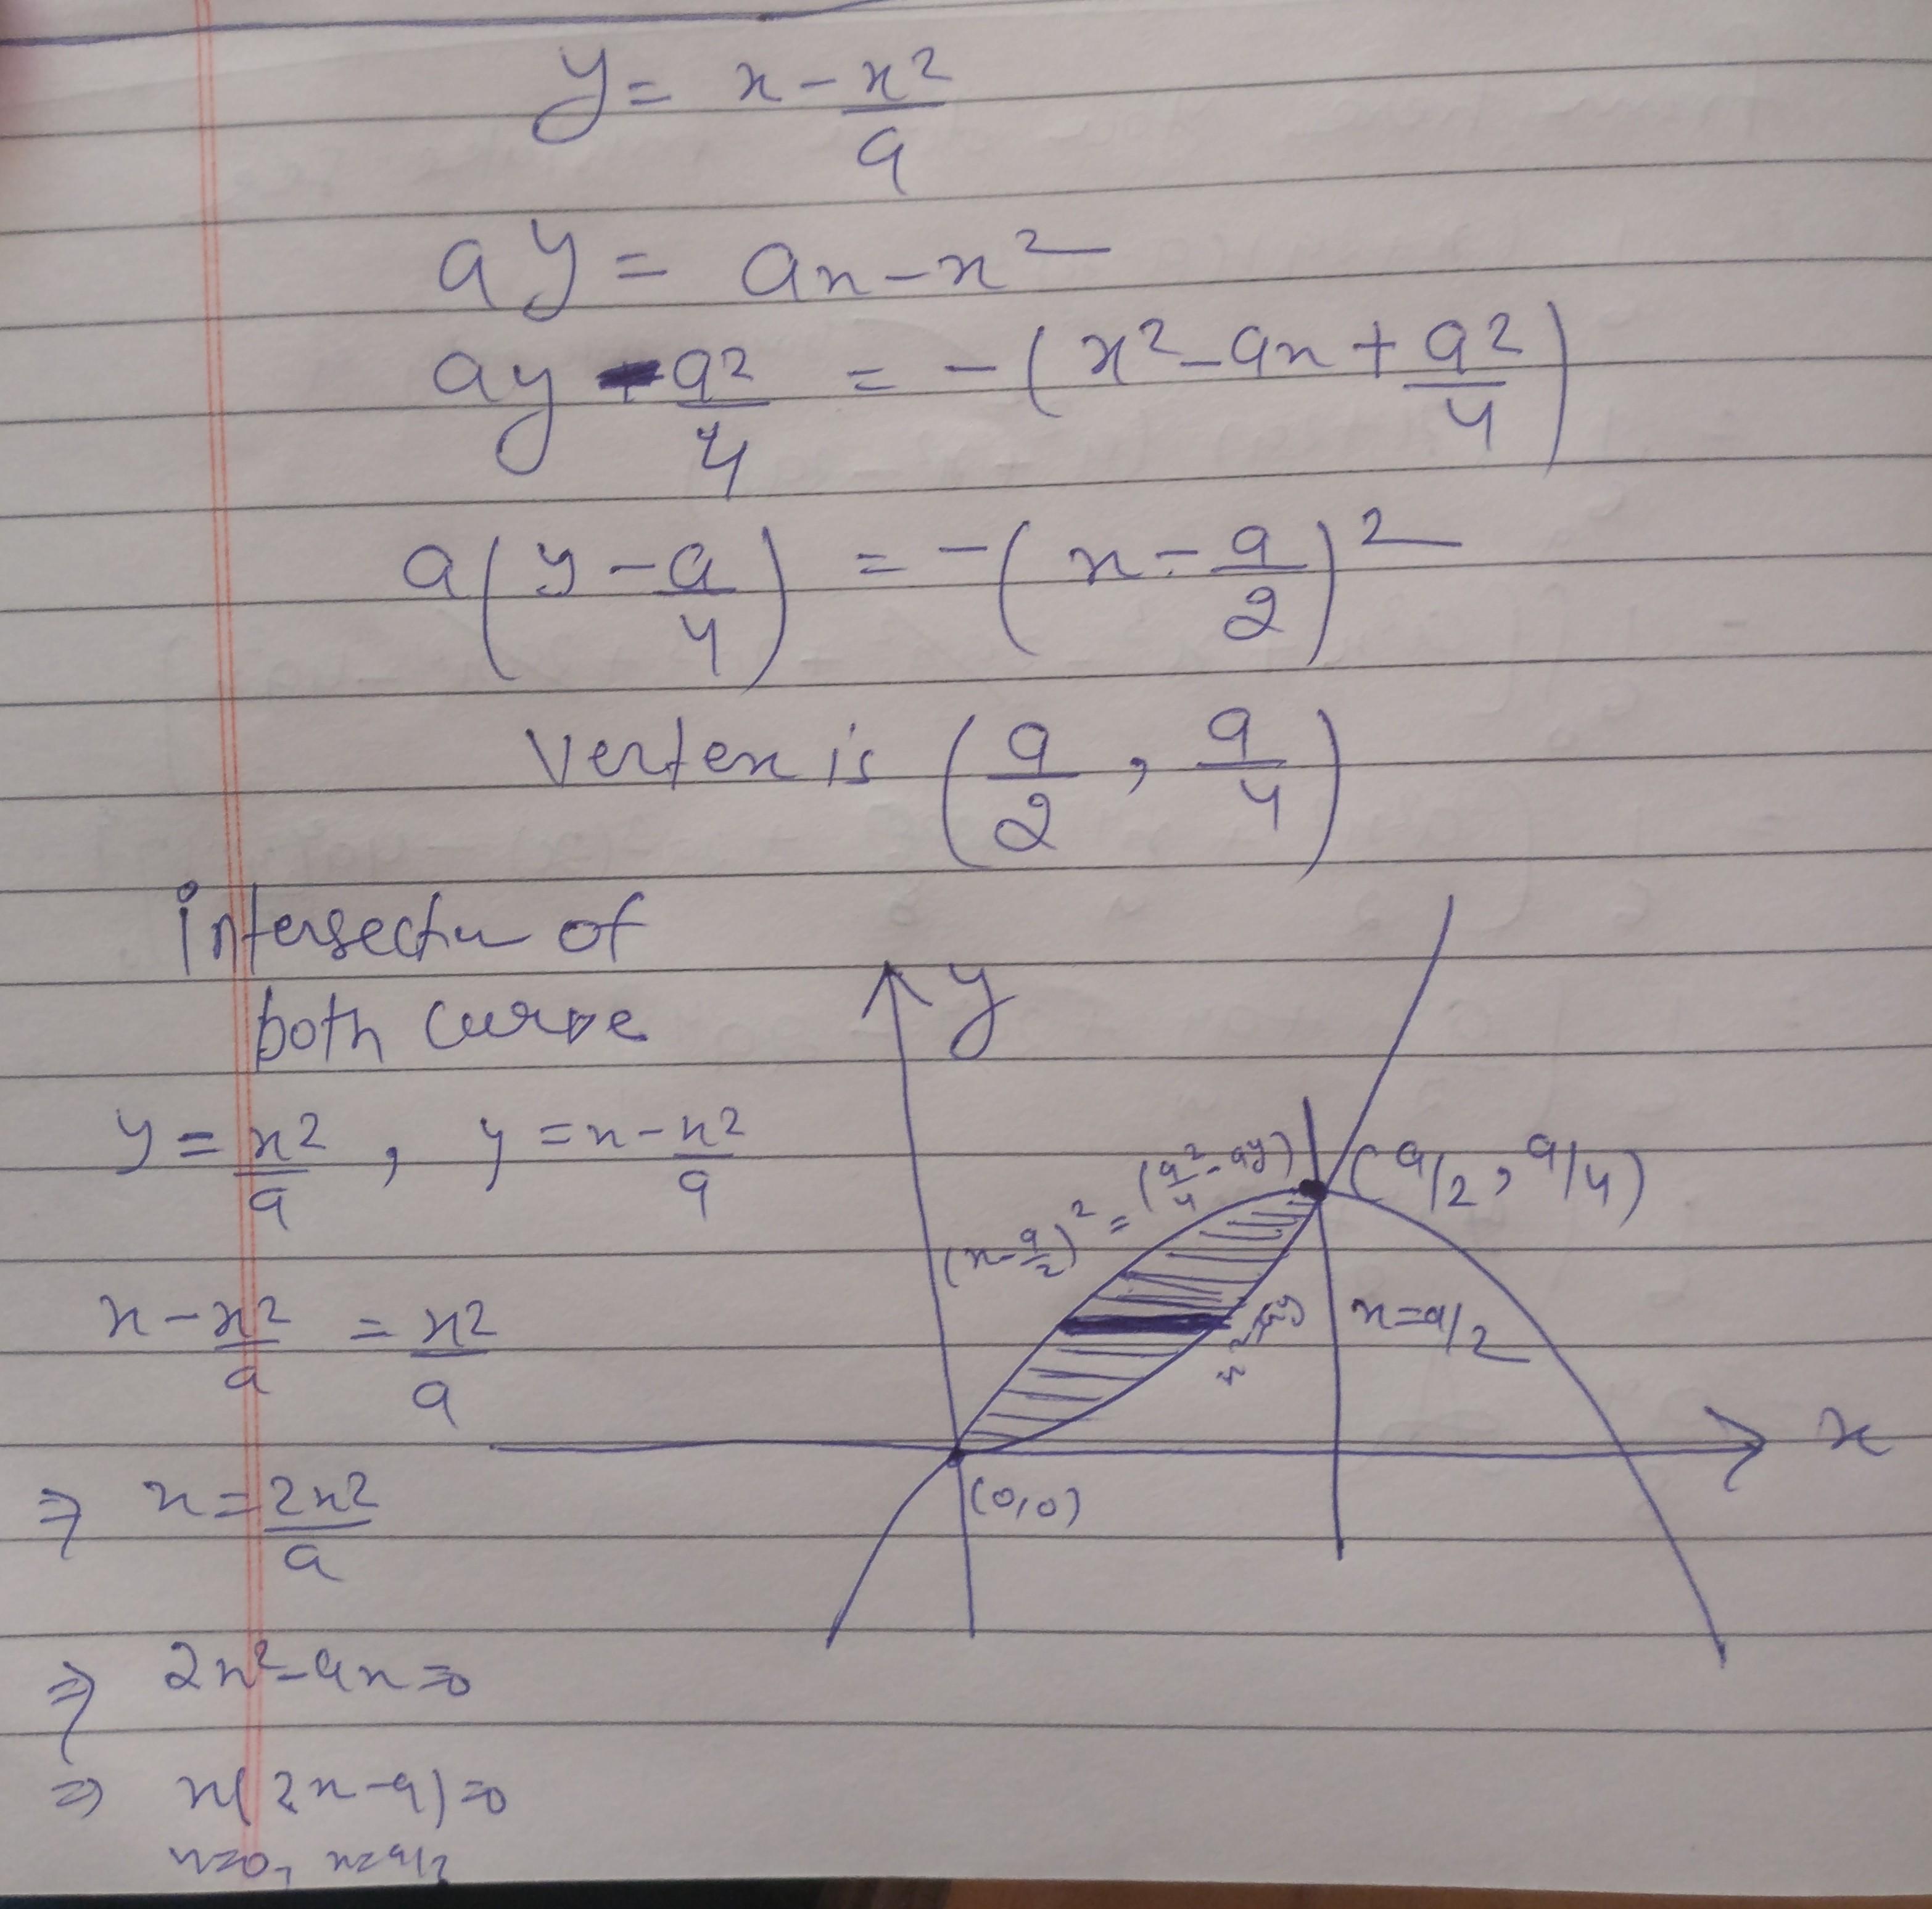 y = x - x²/a
ay = ax - x²
ay - a²/4 = -(x² - ax + a²/4)
a(y - a/4) = -(x - a/2)²
Vertex is (a/2, a/4)
intersectn of
both curve
y = x²/a , y = x - x²/a
x - x²/a = x²/a
⇒ x = 2x²/a
⇒ 2x² - ax = 0
⇒ x(2x - a) = 0
x=0, x=a/2
y
(x - a/2)² = (a²/4 - ay)
(a/2, a/4)
x = a/2
x² = ay
x
(0,0)